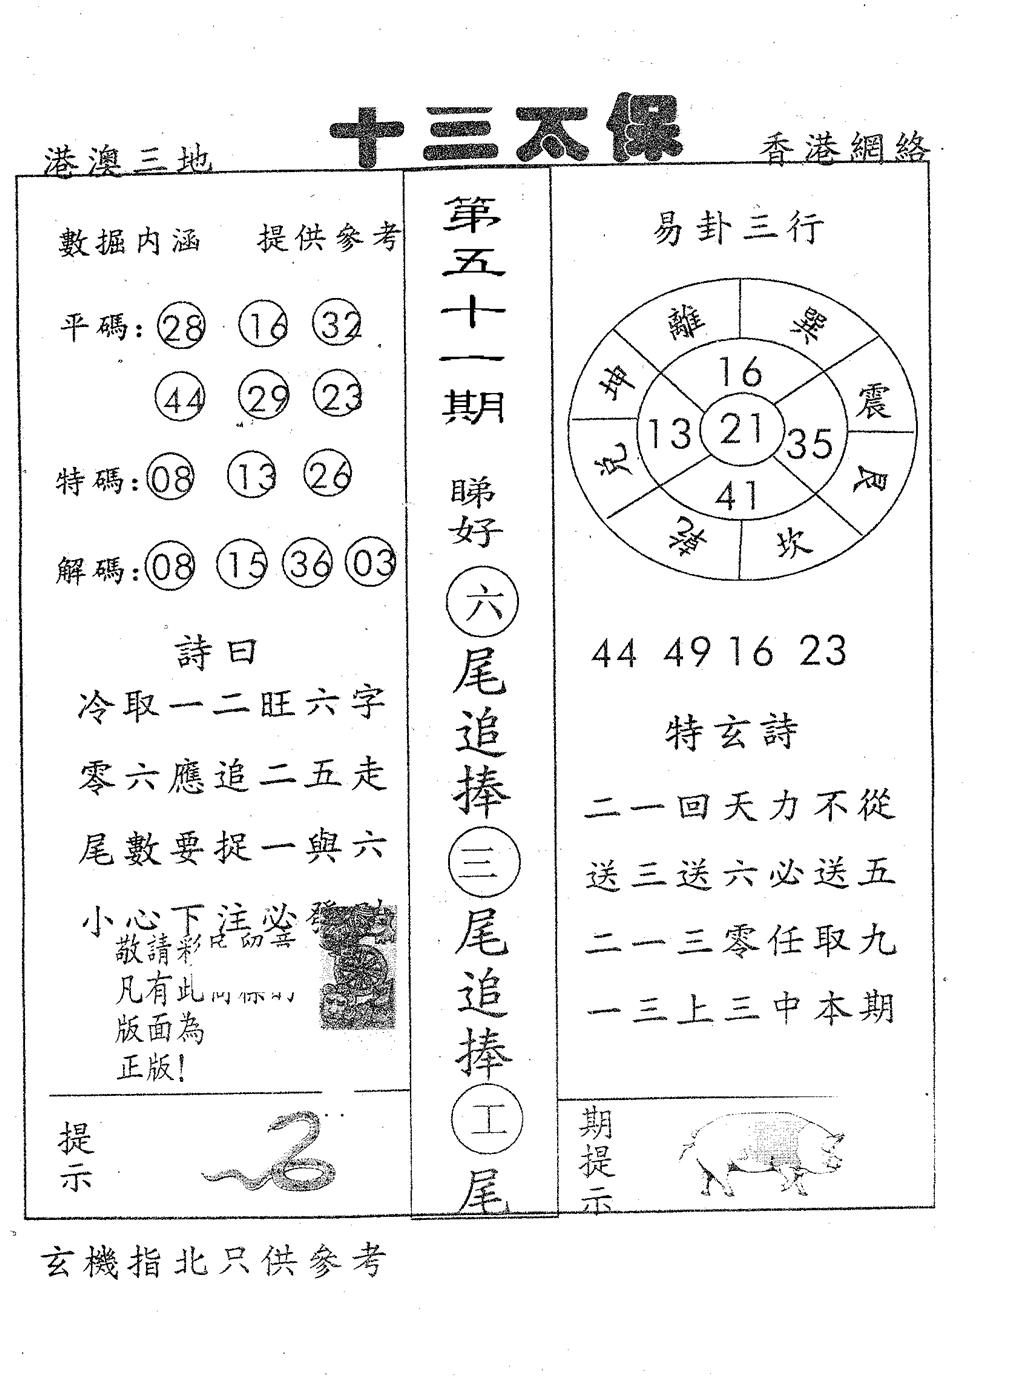 十三太保
港澳三地
香港網絡
數掘内涵 提供參考
平碼: 28 16 32
44 29 23
特碼: 08 13 26
解碼: 08 15 36 03
詩曰
冷取一二旺六字
零六應追二五走
尾數要捉一與六
小心下注必發
敬請彩民留意
凡有此
版面為
正版!
提示
第五十一期
睇好
六尾追捧三尾追捧工尾
易卦三行
離 巽
坤 震
兌 艮
乾 坎
16
13 21 35
41
44 49 16 23
特玄詩
二一回天力不從
送三送六必送五
二一三零任取九
一三上三中本期
期提示
玄機指北只供參考